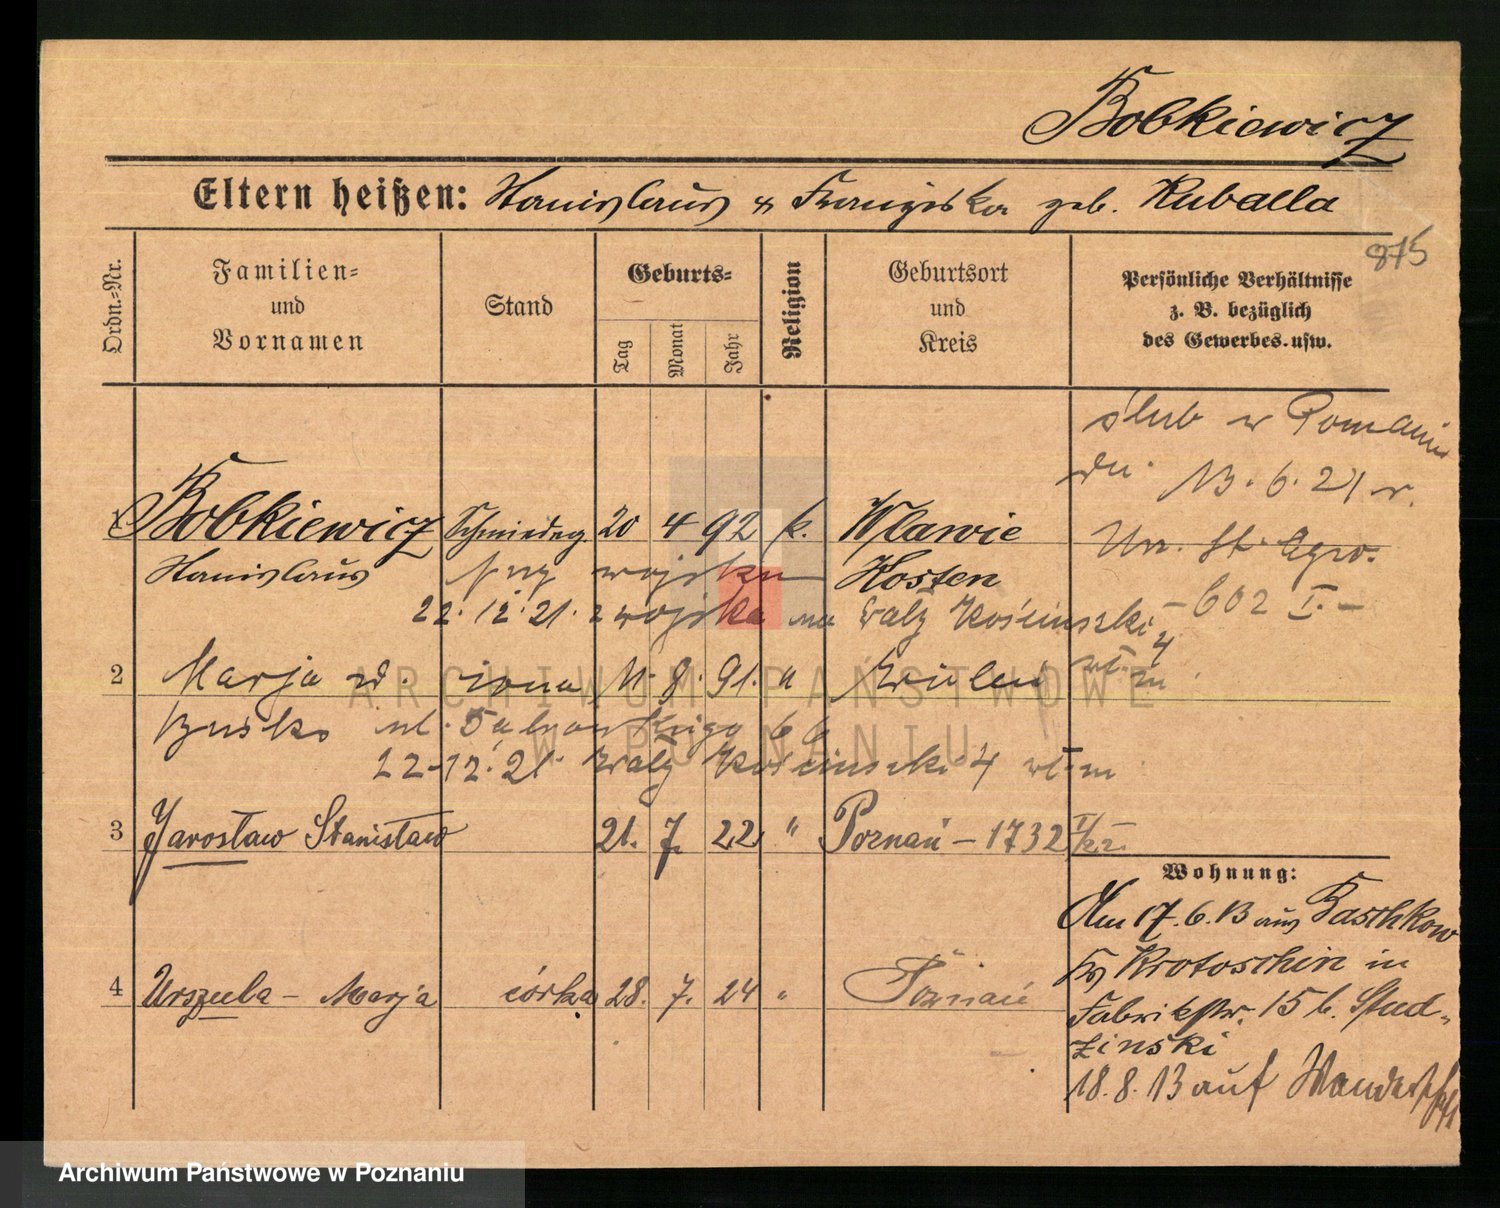 Bobkiewicz
Eltern heißen: Stanislaus & Franziska geb. Kuballa
875
Ordn.-Nr.
Familien- und Vornamen
Stand
Geburts-
Tag
Monat
Jahr
Religion
Geburtsort und Kreis
Persönliche Verhältnisse z. B. bezüglich des Gewerbes usw.
ślub w Poznaniu
dn. 13. 6. 21 r.
Urz. St.
602 I. –
1 Bobkiewicz Schmiedeg. 20 4 92 k. Wlawie
Stanislaus wojsku Kosten
22. 12. 21. z wojska na Wały Kościuszki 4
2 Marja żona 11. 8. 91. "
ul. 6
22-12. 21. Wały Kościuszki 4
3 Jarosław Stanisław 21. 7. 22 " Poznań – 1732
Wohnung:
Am 17. 6. 13 aus Baschkow
Krotoschin in
Fabrikstr. 15 b. Stud-
zinski
18. 8. 13 auf Wandersch.
4 Urszula – Marja córka 28. 7. 24 " Poznań
ARCHIWUM PAŃSTWOWE
W POZNANIU
Archiwum Państwowe w Poznaniu